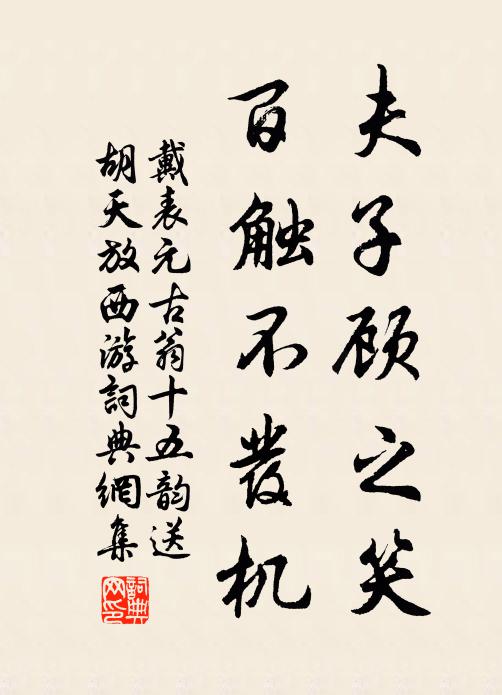 夫子顾之笑
百触不發机
戴表元古翁十五韵送
胡天放西游詞典網集
詞典网印